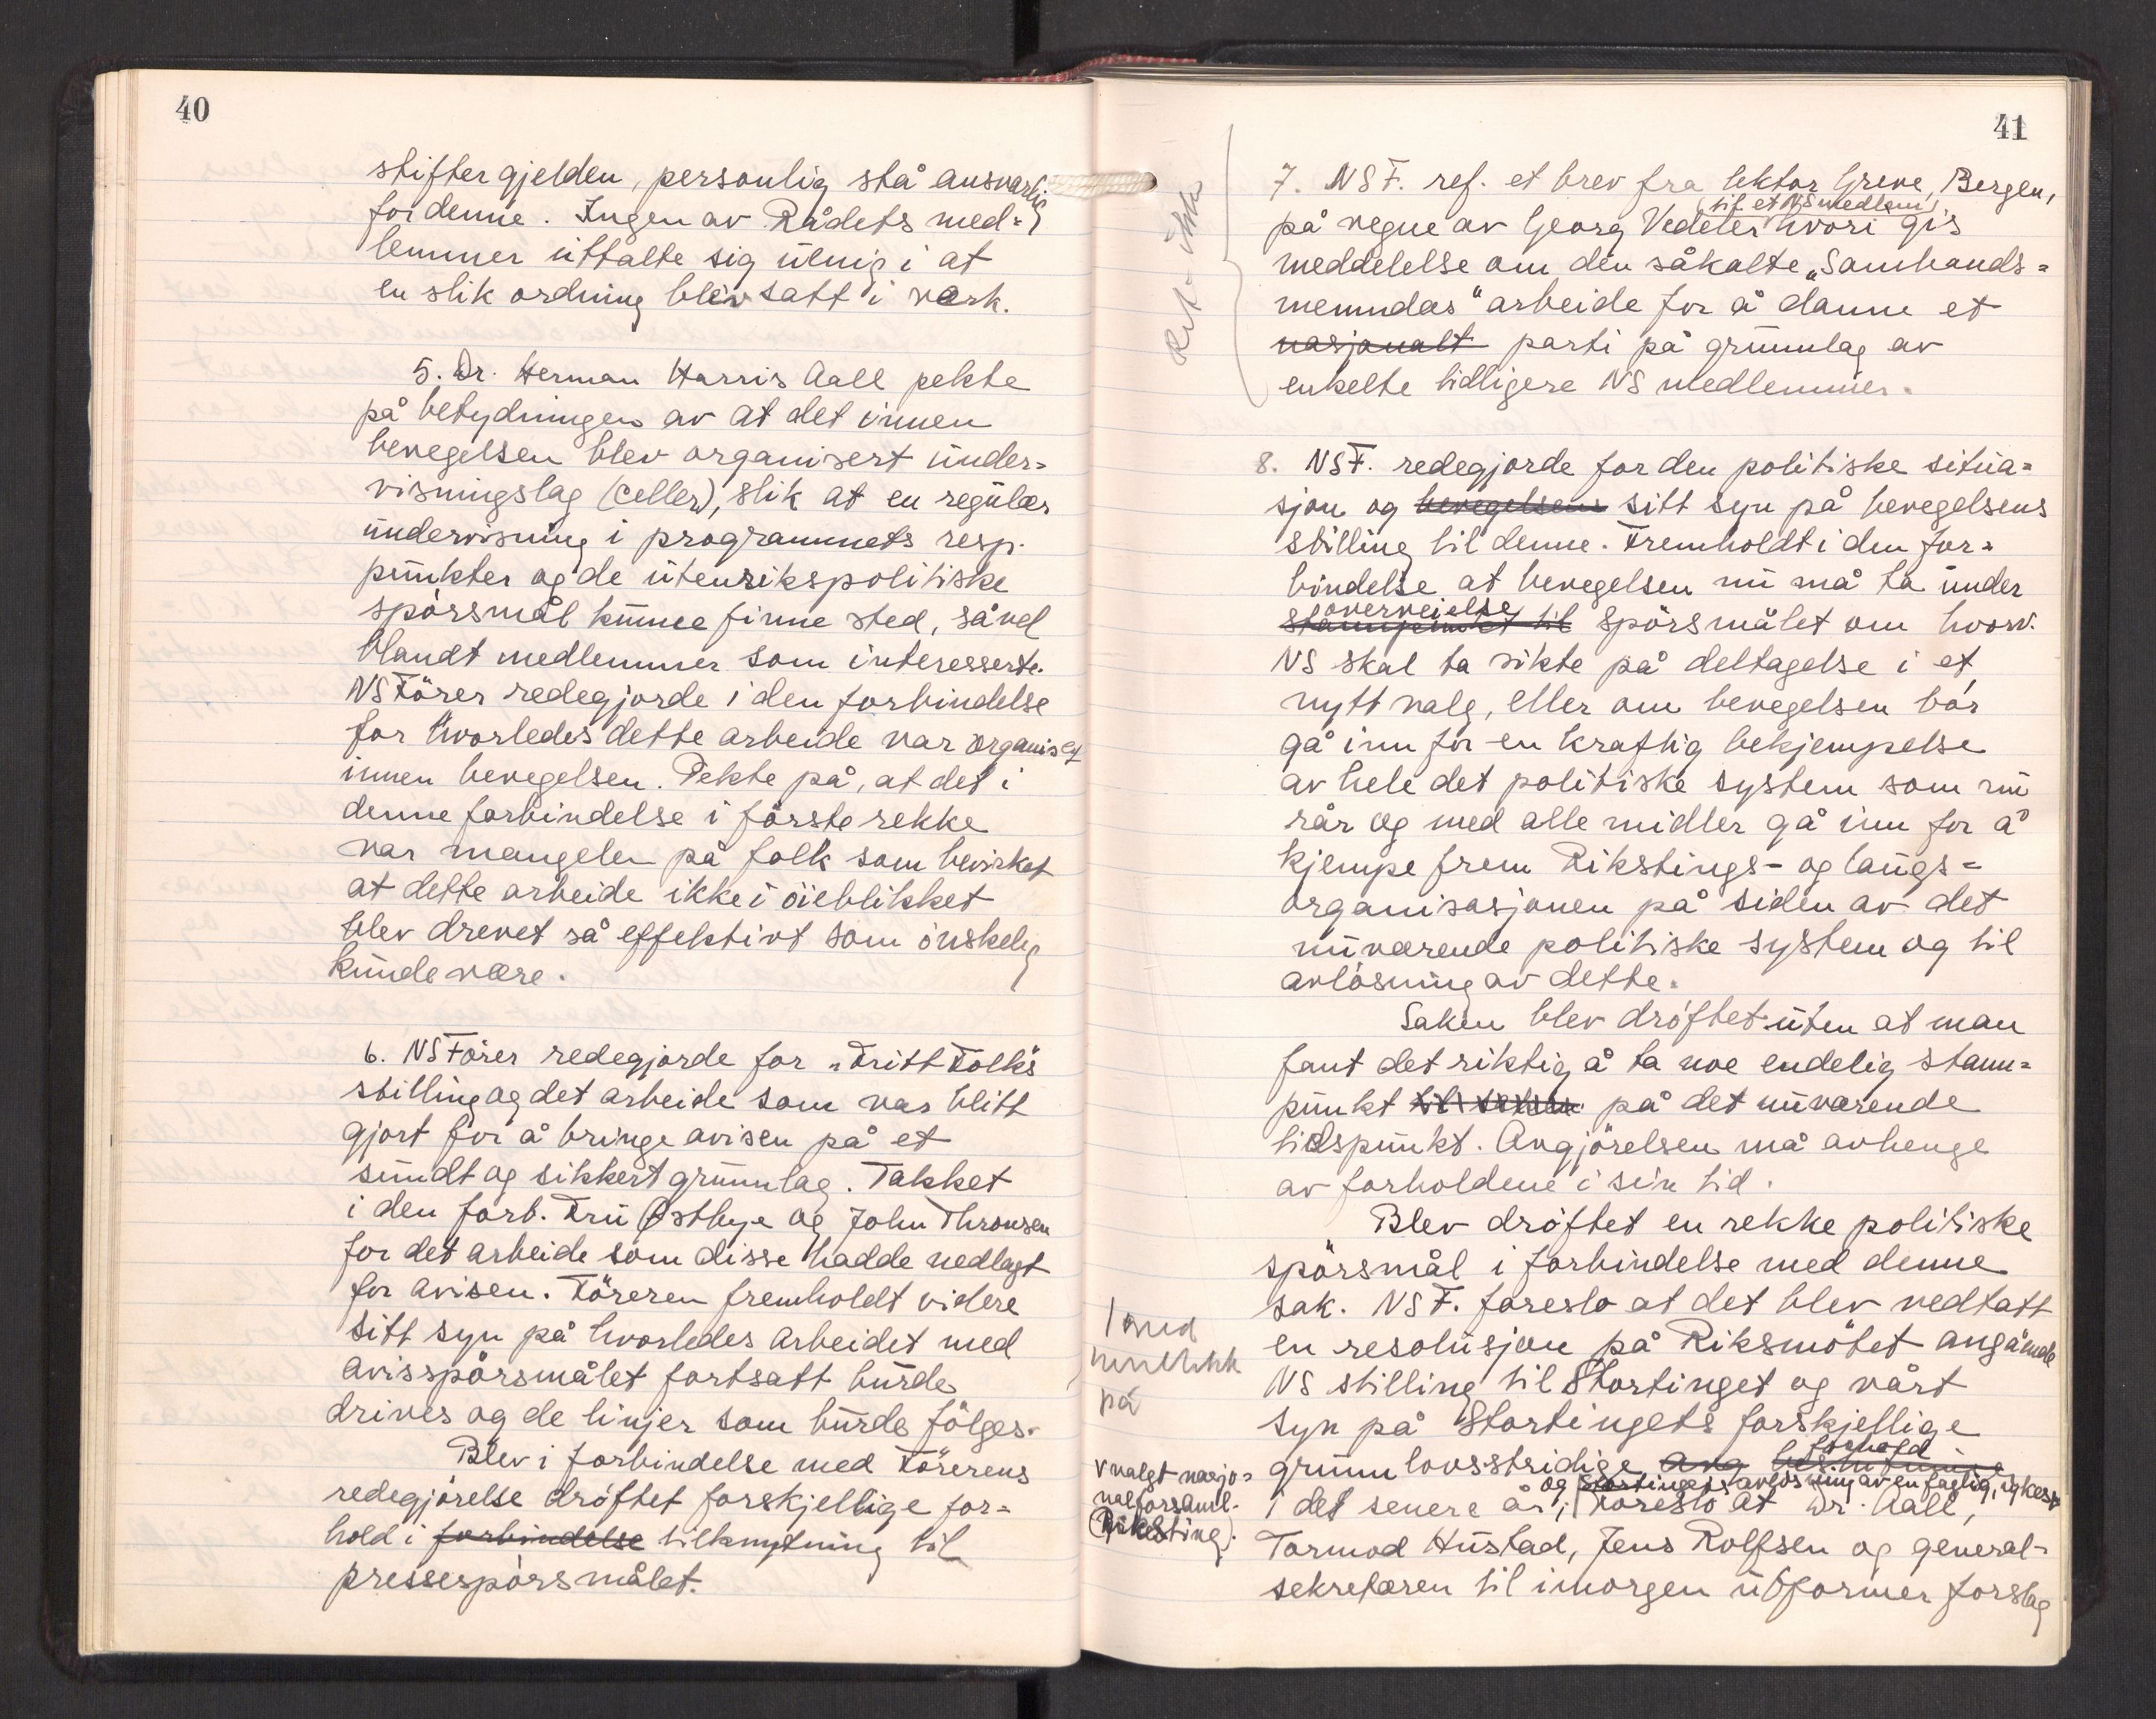 40
stifter gjelden, personlig stå ansvarlig
for denne. Ingen av Rådets med=
lemmer uttalte sig uenig i at
en slik ordning blev satt i verk.
5. Dr. Herman Harris Aall pekte
på betydningen av at det innen
bevegelsen blev organisert under=
visningslag (celler), slik at en regulær
undervisning i programmets resp.
punkter og de utenrikspolitiske
spørsmål kunne finne sted, såvel
blandt medlemmer som interesserte.
NS Fører redegjorde i den forbindelse
for hvorledes dette arbeide var organisert
innen bevegelsen. Pekte på, at det i
denne forbindelse i første rekke
var mangelen på folk som bevirket
at dette arbeide ikke i öieblikket
blev drevet så effektivt som ønskelig
kunde være.
6. NS Fører redegjorde for „Fritt Folk's"
stilling og det arbeide som var blitt
gjort for å bringe avisen på et
sundt og sikkert grunnlag. Takket
i den forb. Fru Østbye og John Thronsen
for det arbeide som disse hadde nedlagt
for avisen. Føreren fremholdt videre
sitt syn på hvorledes arbeidet med
avisspørsmålet fortsatt burde
drives og de linjer som burde følges.
Blev i forbindelse med Førerens
redegjørelse drøftet forskjellige for=
hold i forbindelse tilknytning til
pressespørsmålet.
41
7. NSF. ref. et brev fra lektor Greve, Bergen,
(til et NS medlem)
på vegne av Georg Vedeler hvori gis
meddelelse om den såkalte „Sambands=
nemndas" arbeide for å danne et
nasjonalt parti på grunnlag av
enkelte tidligere NS medlemmer.
8. NSF. redegjorde for den politiske situa=
sjon og bevegelsens sitt syn på bevegelsens
stilling til denne. Fremholdt i den for=
bindelse at bevegelsen nu må ta under
overveielse
standpunktet til spørsmålet om hvorv.
NS skal ta sikte på deltagelse i et
nytt valg, eller om bevegelsen bør
gå inn for en kraftig bekjempelse
av hele det politiske system som nu
rår og med alle midler gå inn for å
kjempe frem Rikstings- og laugs=
organisasjonen på siden av det
nuværende politiske system og til
avløsning av dette.
Saken blev drøftet uten at man
fant det riktig å ta noe endelig stann=
punkt til saken på det nuværende
tidspunkt. Avgjørelsen må avhenge
av forholdene i sin tid.
Blev drøftet en rekke politiske
spørsmål i forbindelse med denne
sak. NSF. foreslo at det blev vedtatt
en resolusjon på Riksmøtet angående
NS stilling til Stortinget og vårt
syn på Stortingets forskjellige
forhold
grunnlovsstridige ang
og Stortingets avløsning av en faglig, yrkes=
i det senere år; Foreslo at Dr. Aall,
Tormod Hustad, Jens Rolfsen og general-
sekretæren til imorgen utformer forslag
v valgt nasjo=
nalforsaml.
(Riksting).